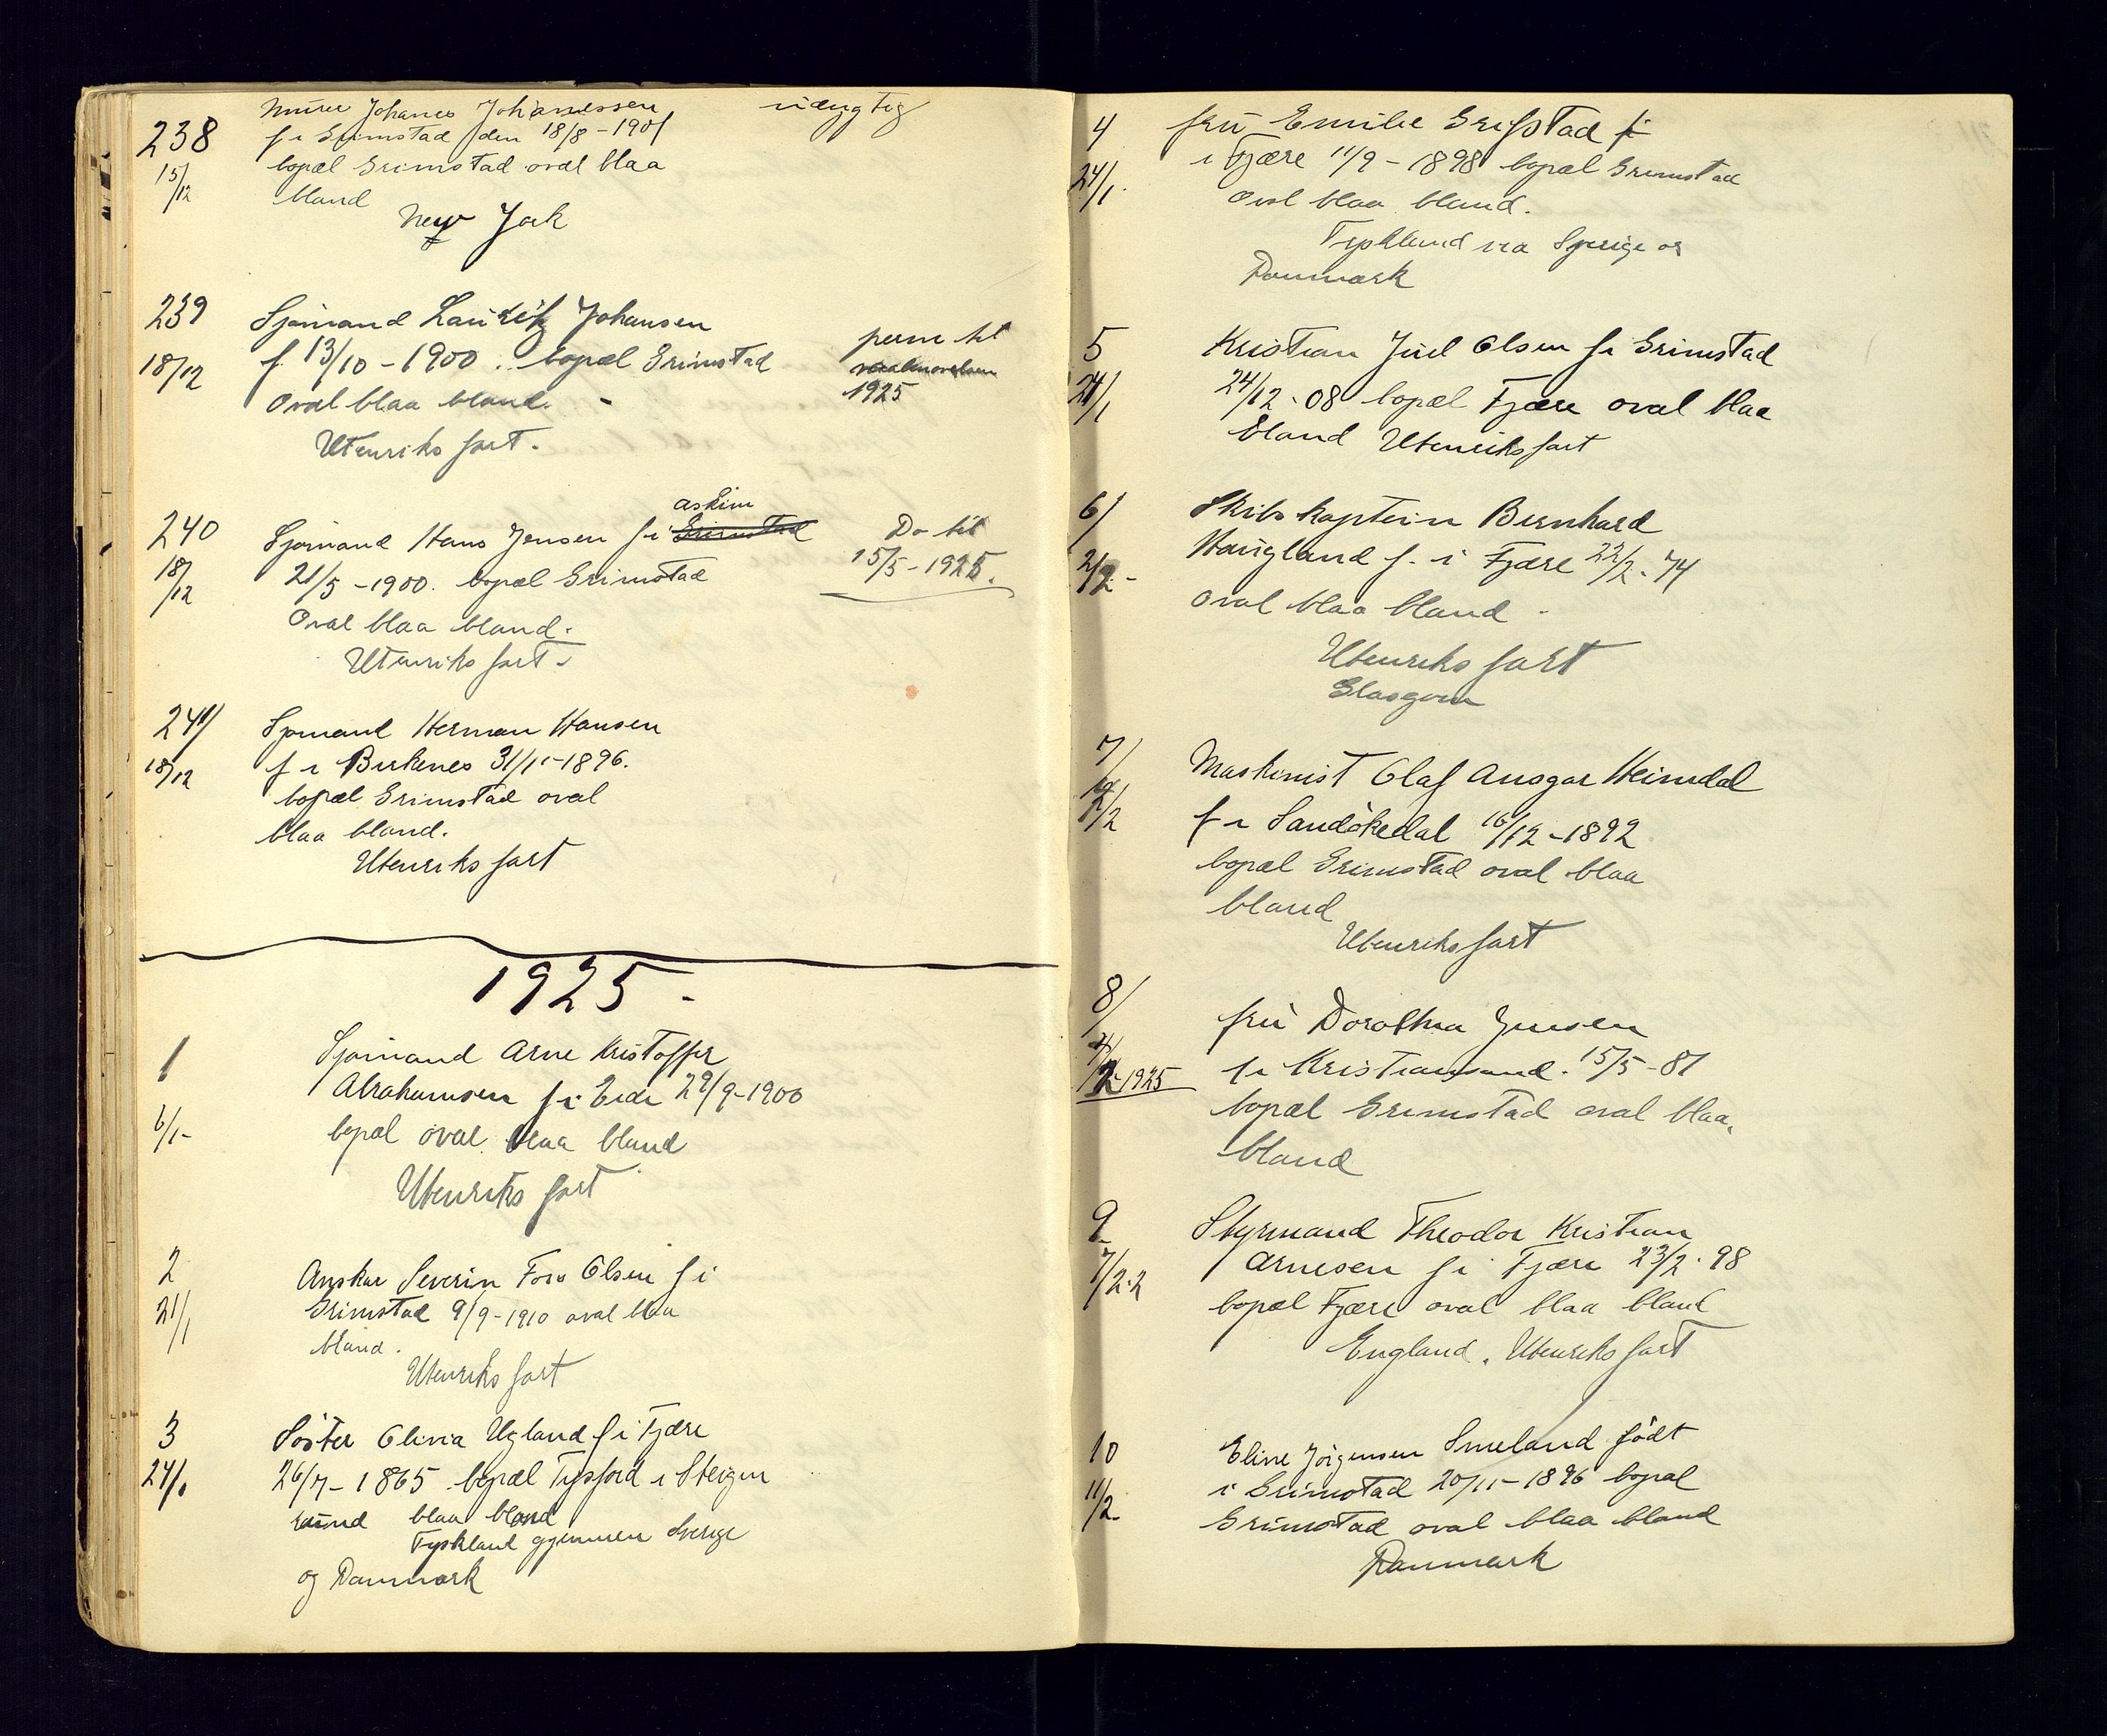 238 Murer Johanes Johannessen udygtig
f i Grimstad den 18/8-1901
15/12 bopæl Grimstad oval blaa
bland
New York
239 Sjømand Lauritz Johansen
perm til
18/12 f. 13/10-1900. bopæl Grimstad
1925
Oval blaa bland. -
Utenriks fart.
askim
240 Sjømand Hans Jensen f i Grimstad Do til
18/12 21/5-1900. bopæl Grimstad 15/5-1925.
Oval blaa bland.
Utenriks fart.
241/ Sjømand Herman Hansen
18/12 f i Birkenes 31/11-1896.
bopæl Grimstad oval
blaa bland.
Utenriks fart
1925.-
1 Sjømand Arne Kristoffer
Abrahamsen f i Eide 29/9-1900
6/1- bopæl oval blaa bland
Utenriks fart
2 Anskar Severin Foss Olsen f i
21/1 Grimstad 9/9-1910 oval blaa
bland.
Utenriks fart
3 Søster Olivia Ugland f i Fjære
24/1 26/7-1865 bopæl Tysfjord i Steigen
rund blaa bland
Tyskland gjennem Sverige
og Danmark
4 fru Emilie Grefstad f
24/1. i Fjære 11/9-1898 bopæl Grimstad
Oval blaa bland.
Tyskland via Sverige og
Danmark
5 Kristian Juel Olsen f i Grimstad
24/1 24/12-08 bopæl Fjære oval blaa
bland Utenriks fart
6/ Skibskaptein Bernhard
2/2- Haugland f. i Fjære 22/2-74
oval blaa bland -
Utenriks fart
Glasgow
7/ Maskinist Olaf Ansgar Heimdal
2/2 f i Sandøkedal 16/12-1892
bopæl Grimstad oval blaa
bland
Utenriks fart
8/ fru Dorothea Jensen
2-1925 f i Kristiansand. 15/5-81
bopæl Grimstad oval blaa.
bland
9. Styrmand Theodor Kristian
7/2.2 Arnesen f i Fjære 23/2-98
bopæl Fjære oval blaa bland
England. Utenriks fart
10 Eline Jørgensen Smeland født
11/2. i Grimstad 20/11-1896 bopæl
Grimstad oval blaa bland
Danmark